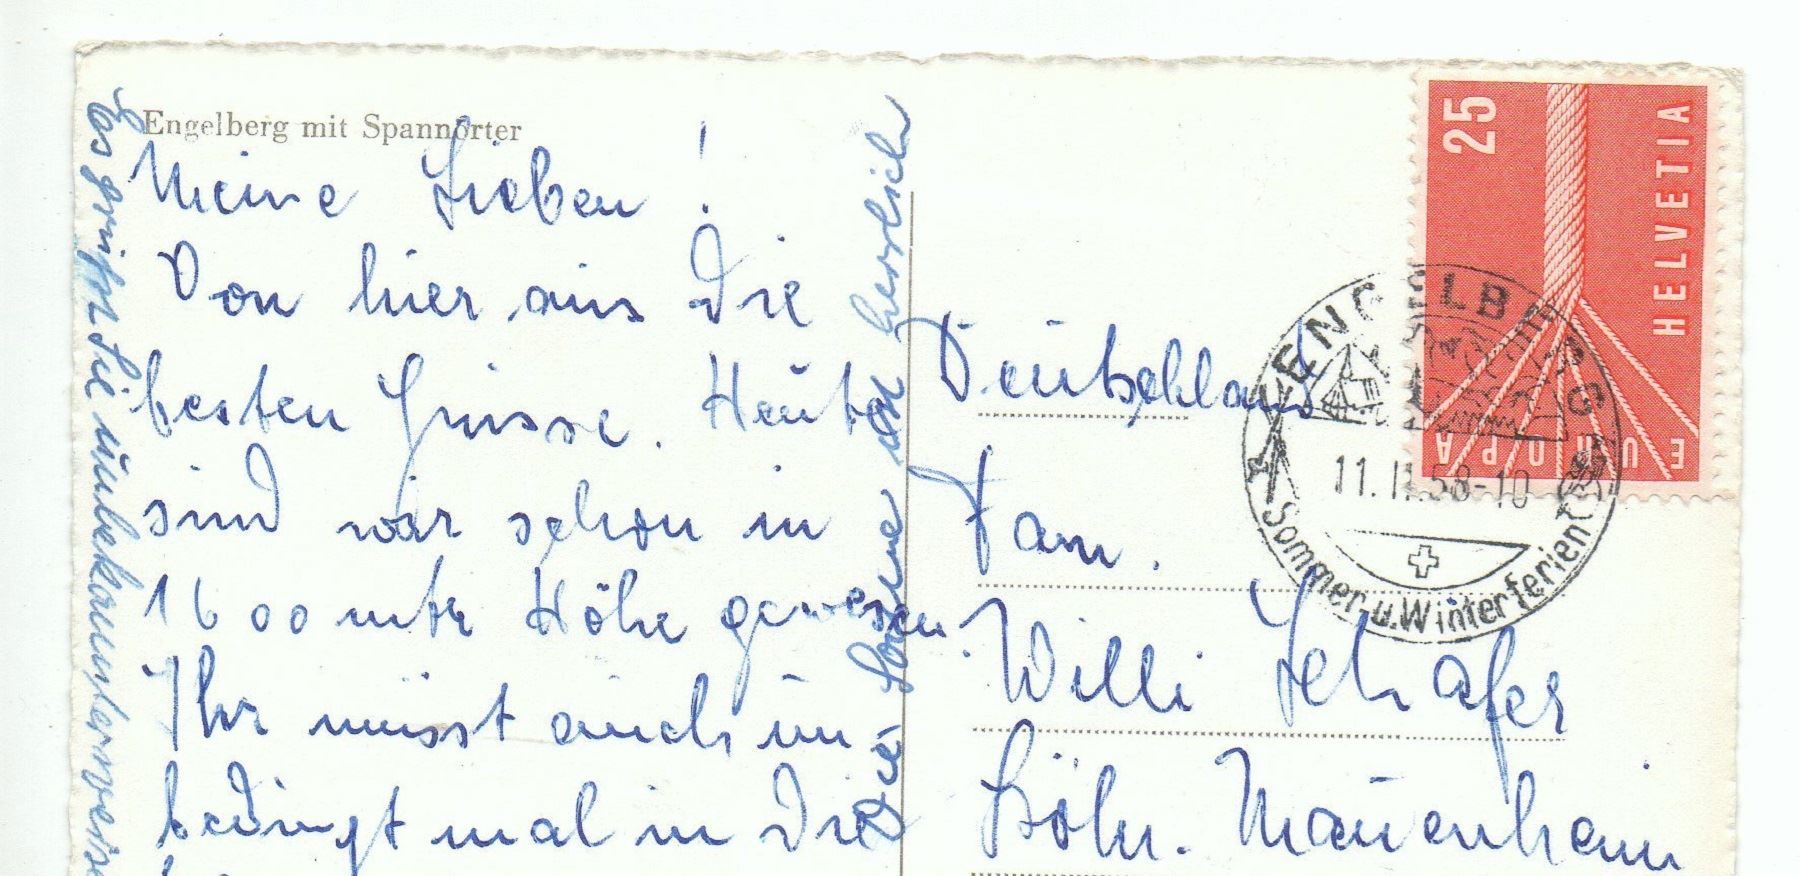 Engelberg mit Spannörter
Meine Lieben!
Von hier aus die
besten Grüsse. Heute
sind wir schon in
1600 mtr Höhe gewesen.
Ihr müsst auch un
bedingt mal in die
Es grüßt Sie unbekannterweise
Die Sonne ist herrlich
25
HELVETIA
EUROPA
ENGELBERG
11.II.58-10
Sommer u. Winterferien
Deutschland
Fam.
Willi Schäfer
Köln. Mauenheim